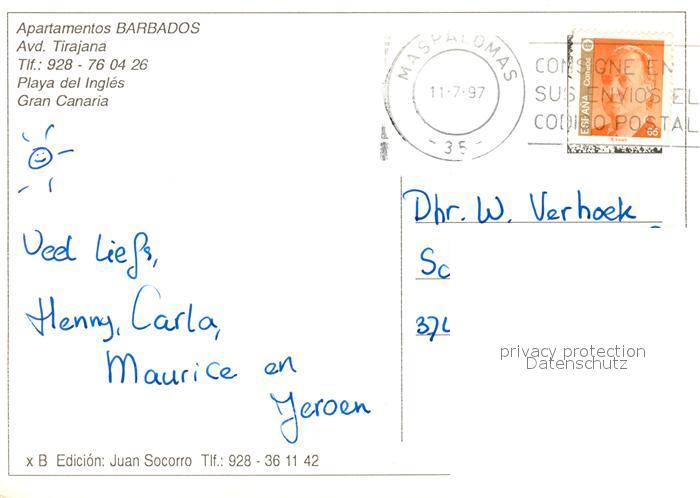 Apartamentos BARBADOS
Avd. Tirajana
Tlf.: 928 - 76 04 26
Playa del Inglés
Gran Canaria
MASPALOMAS
11-7-97
- 35 -
CONSIGNE EN
SUS ENVIOS EL
CODIGO POSTAL
ESPAÑA Correos
66
Veel liefs,
Henny, Carla,
Maurice en
Jeroen
Dhr. W. Verhoek
Sc
privacy protection
Datenschutz
x B Edición: Juan Socorro Tlf.: 928 - 36 11 42